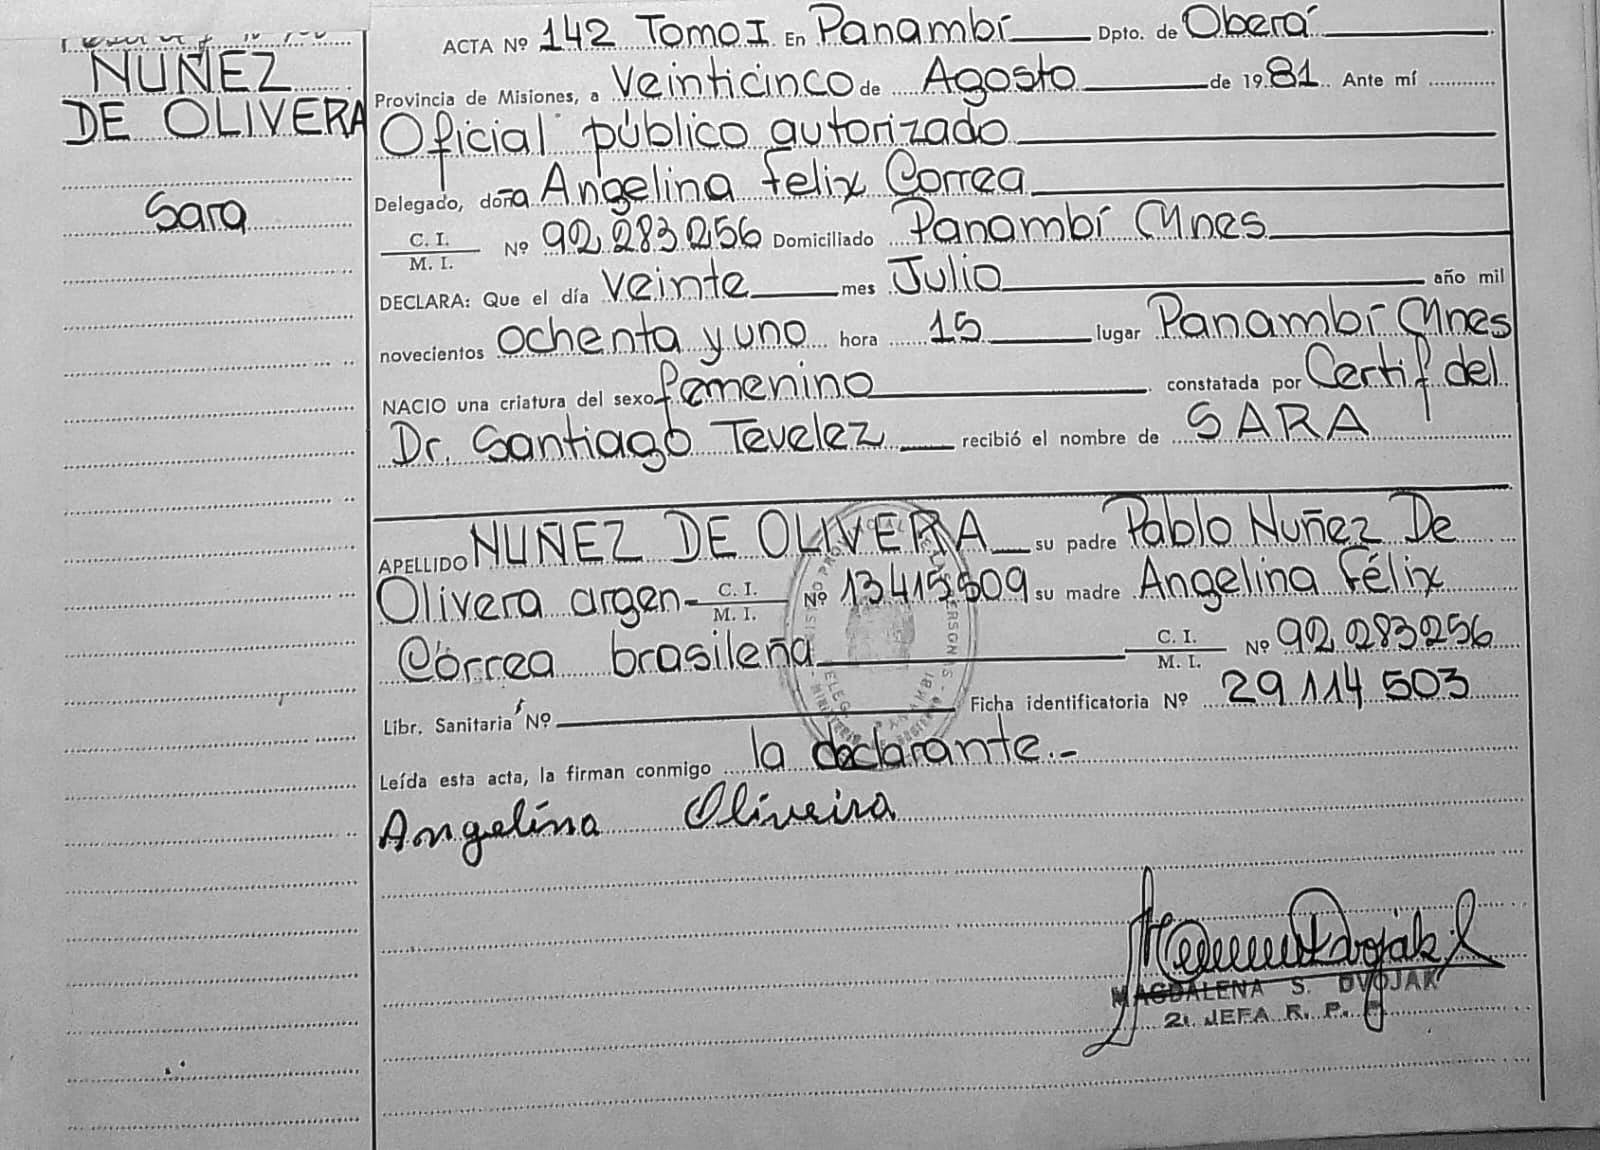 NUÑEZ
DE OLIVERA
Sara
ACTA Nº 142 Tomo I En Panambí Dpto. de Oberá
Provincia de Misiones, a Veinticinco de Agosto de 1981. Ante mí
Oficial público autorizado
Delegado, doña Angelina Felix Correa
C. I. / M. I. Nº 92.283.256 Domiciliado Panambí Mnes
DECLARA: Que el día Veinte mes Julio año mil
novecientos ochenta y uno hora 15 lugar Panambí Mnes
NACIO una criatura del sexo femenino constatada por Certif del
Dr. Santiago Tevelez recibió el nombre de SARA
APELLIDO NUÑEZ DE OLIVERA su padre Pablo Nuñez De
Olivera argen- C. I. / M. I. Nº 13.415.509 su madre Angelina Félix
Correa brasileña C. I. / M. I. Nº 92.283256
Libr. Sanitaria Nº Ficha identificatoria Nº 29.114.503
Leída esta acta, la firman conmigo la declarante.-
Angelina Oliveira
MAGDALENA S. DVOJAK
2. JEFA R. P.